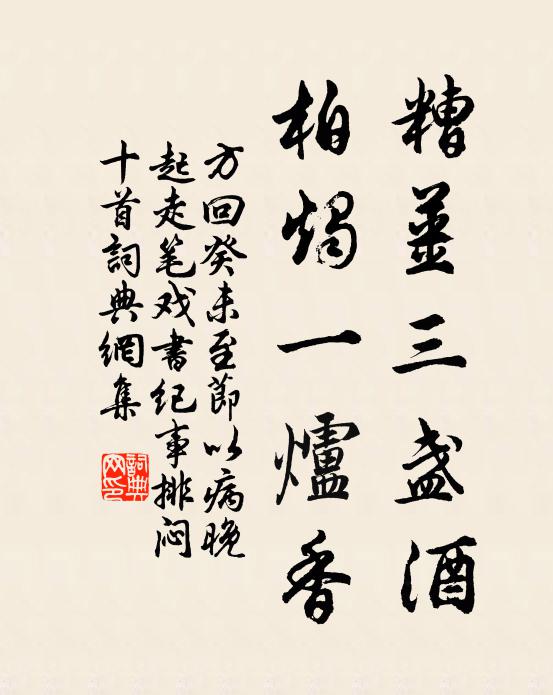 糟薑三盏酒
柏燭一爐香
方回癸未至節以病晚
起走笔戏書纪事排闷
十首詞典網集
詞典网印